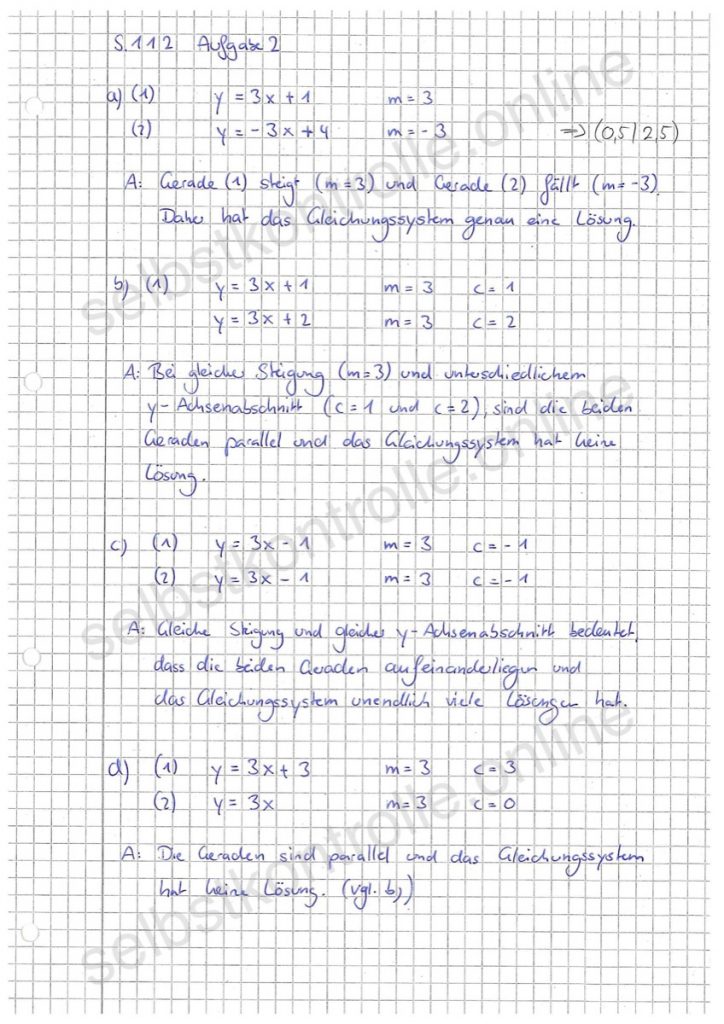 S. 112 Aufgabe 2
a) (1) y = 3x + 1 m = 3
(2) y = - 3x + 4 m = - 3 => (0,5 / 2,5)
A: Gerade (1) steigt (m = 3) und Gerade (2) fällt (m = -3).
Daher hat das Gleichungssystem genau eine Lösung.
b) (1) y = 3x + 1 m = 3 c = 1
y = 3x + 2 m = 3 c = 2
A: Bei gleicher Steigung (m = 3) und unterschiedlichem
y-Achsenabschnitt (c = 1 und c = 2), sind die beiden
Geraden parallel und das Gleichungssystem hat keine
Lösung.
c) (1) y = 3x - 1 m = 3 c = - 1
(2) y = 3x - 1 m = 3 c = - 1
A: Gleiche Steigung und gleicher y-Achsenabschnitt bedeutet,
dass die beiden Geraden aufeinanderliegen und
das Gleichungssystem unendlich viele Lösungen hat.
d) (1) y = 3x + 3 m = 3 c = 3
(2) y = 3x m = 3 c = 0
A: Die Geraden sind parallel und das Gleichungssystem
hat keine Lösung. (vgl. b))
selbstkontrolle.online
selbstkontrolle.online
selbstkontrolle.online